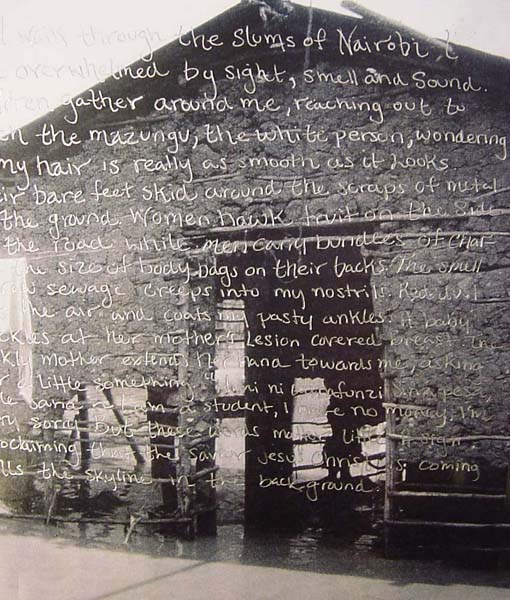 walk through the slums of Nairobi, I
overwhelmed by sight, smell and sound.
gather around me, reaching out to
the mazungu, the white person, wondering
my hair is really as smooth as it looks
bare feet skid around the scraps of metal
the ground. Women hawk fruit on the side
the road while men carry bundles of char
the size of body bags on their backs. The smell
sewage creeps into my nostrils. Red dust
the air and coats my pasty ankles. A baby
at her mother's lesion covered breast. The
mother extends her hand towards me, asking
a little something, ni
I am a student, I have no money. I'm
sorry but these words matter little. A sign
proclaiming that the savior Jesus Christ is coming
the skyline in the background.